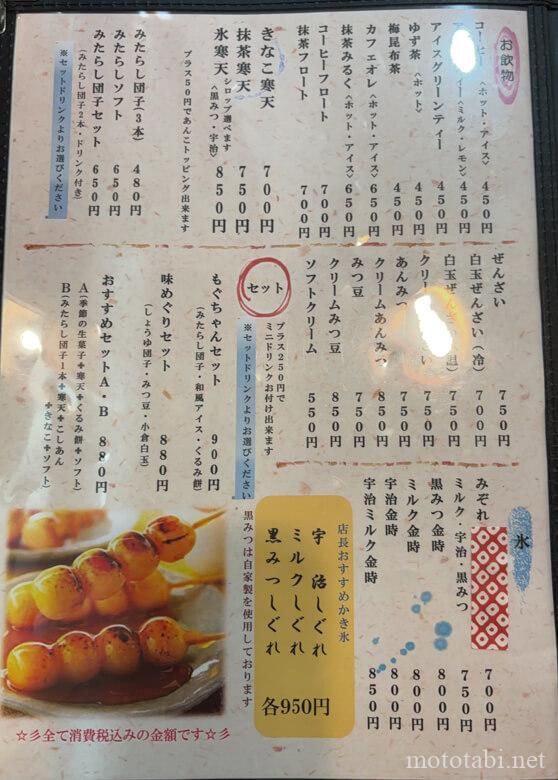 お飲物
コーヒー〈ホット・アイス〉 450円
〈ミルク・レモン〉 450円
アイスグリーンティー 450円
ゆず茶〈ホット〉 450円
梅昆布茶 450円
カフェオレ〈ホット・アイス〉 650円
抹茶みるく〈ホット・アイス〉 650円
コーヒーフロート 700円
抹茶フロート 700円
きなこ寒天 700円
抹茶寒天 750円
氷寒天 シロップ選べます〈黒みつ・宇治〉 850円
プラス50円であんこトッピング出来ます
みたらし団子(3本) 480円
みたらしソフト 650円
みたらし団子セット 650円
(みたらし団子2本・ドリンク付き)
※セットドリンクよりお選びください
ぜんざい 750円
白玉ぜんざい(冷) 700円
白玉ぜんざい 750円
クリー ぜんざい 750円
あんみつ 750円
クリームあんみつ 850円
みつ豆 750円
クリームみつ豆 800円
ソフトクリーム 550円
セット
プラス250円で
ミニドリンクお付け出来ます
※セットドリンクよりお選びください
もぐちゃんセット 900円
(みたらし団子・和風アイス・くるみ餅)
味めぐりセット 880円
(しょうゆ団子・みつ豆・小倉白玉)
おすすめセットA・B 880円
A(季節の生菓子+寒天+くるみ餅+ソフト)
B(みたらし団子1本+寒天+こしあん
+きなこ+ソフト)
氷
みぞれ 700円
ミルク・宇治・黒みつ 750円
黒みつ金時 800円
ミルク金時 800円
宇治金時 800円
宇治ミルク金時 850円
店長おすすめかき氷
宇治しぐれ
ミルクしぐれ
黒みつしぐれ
各950円
黒みつは自家製を使用しております
☆彡全て消費税込みの金額です☆彡
mototabi.net